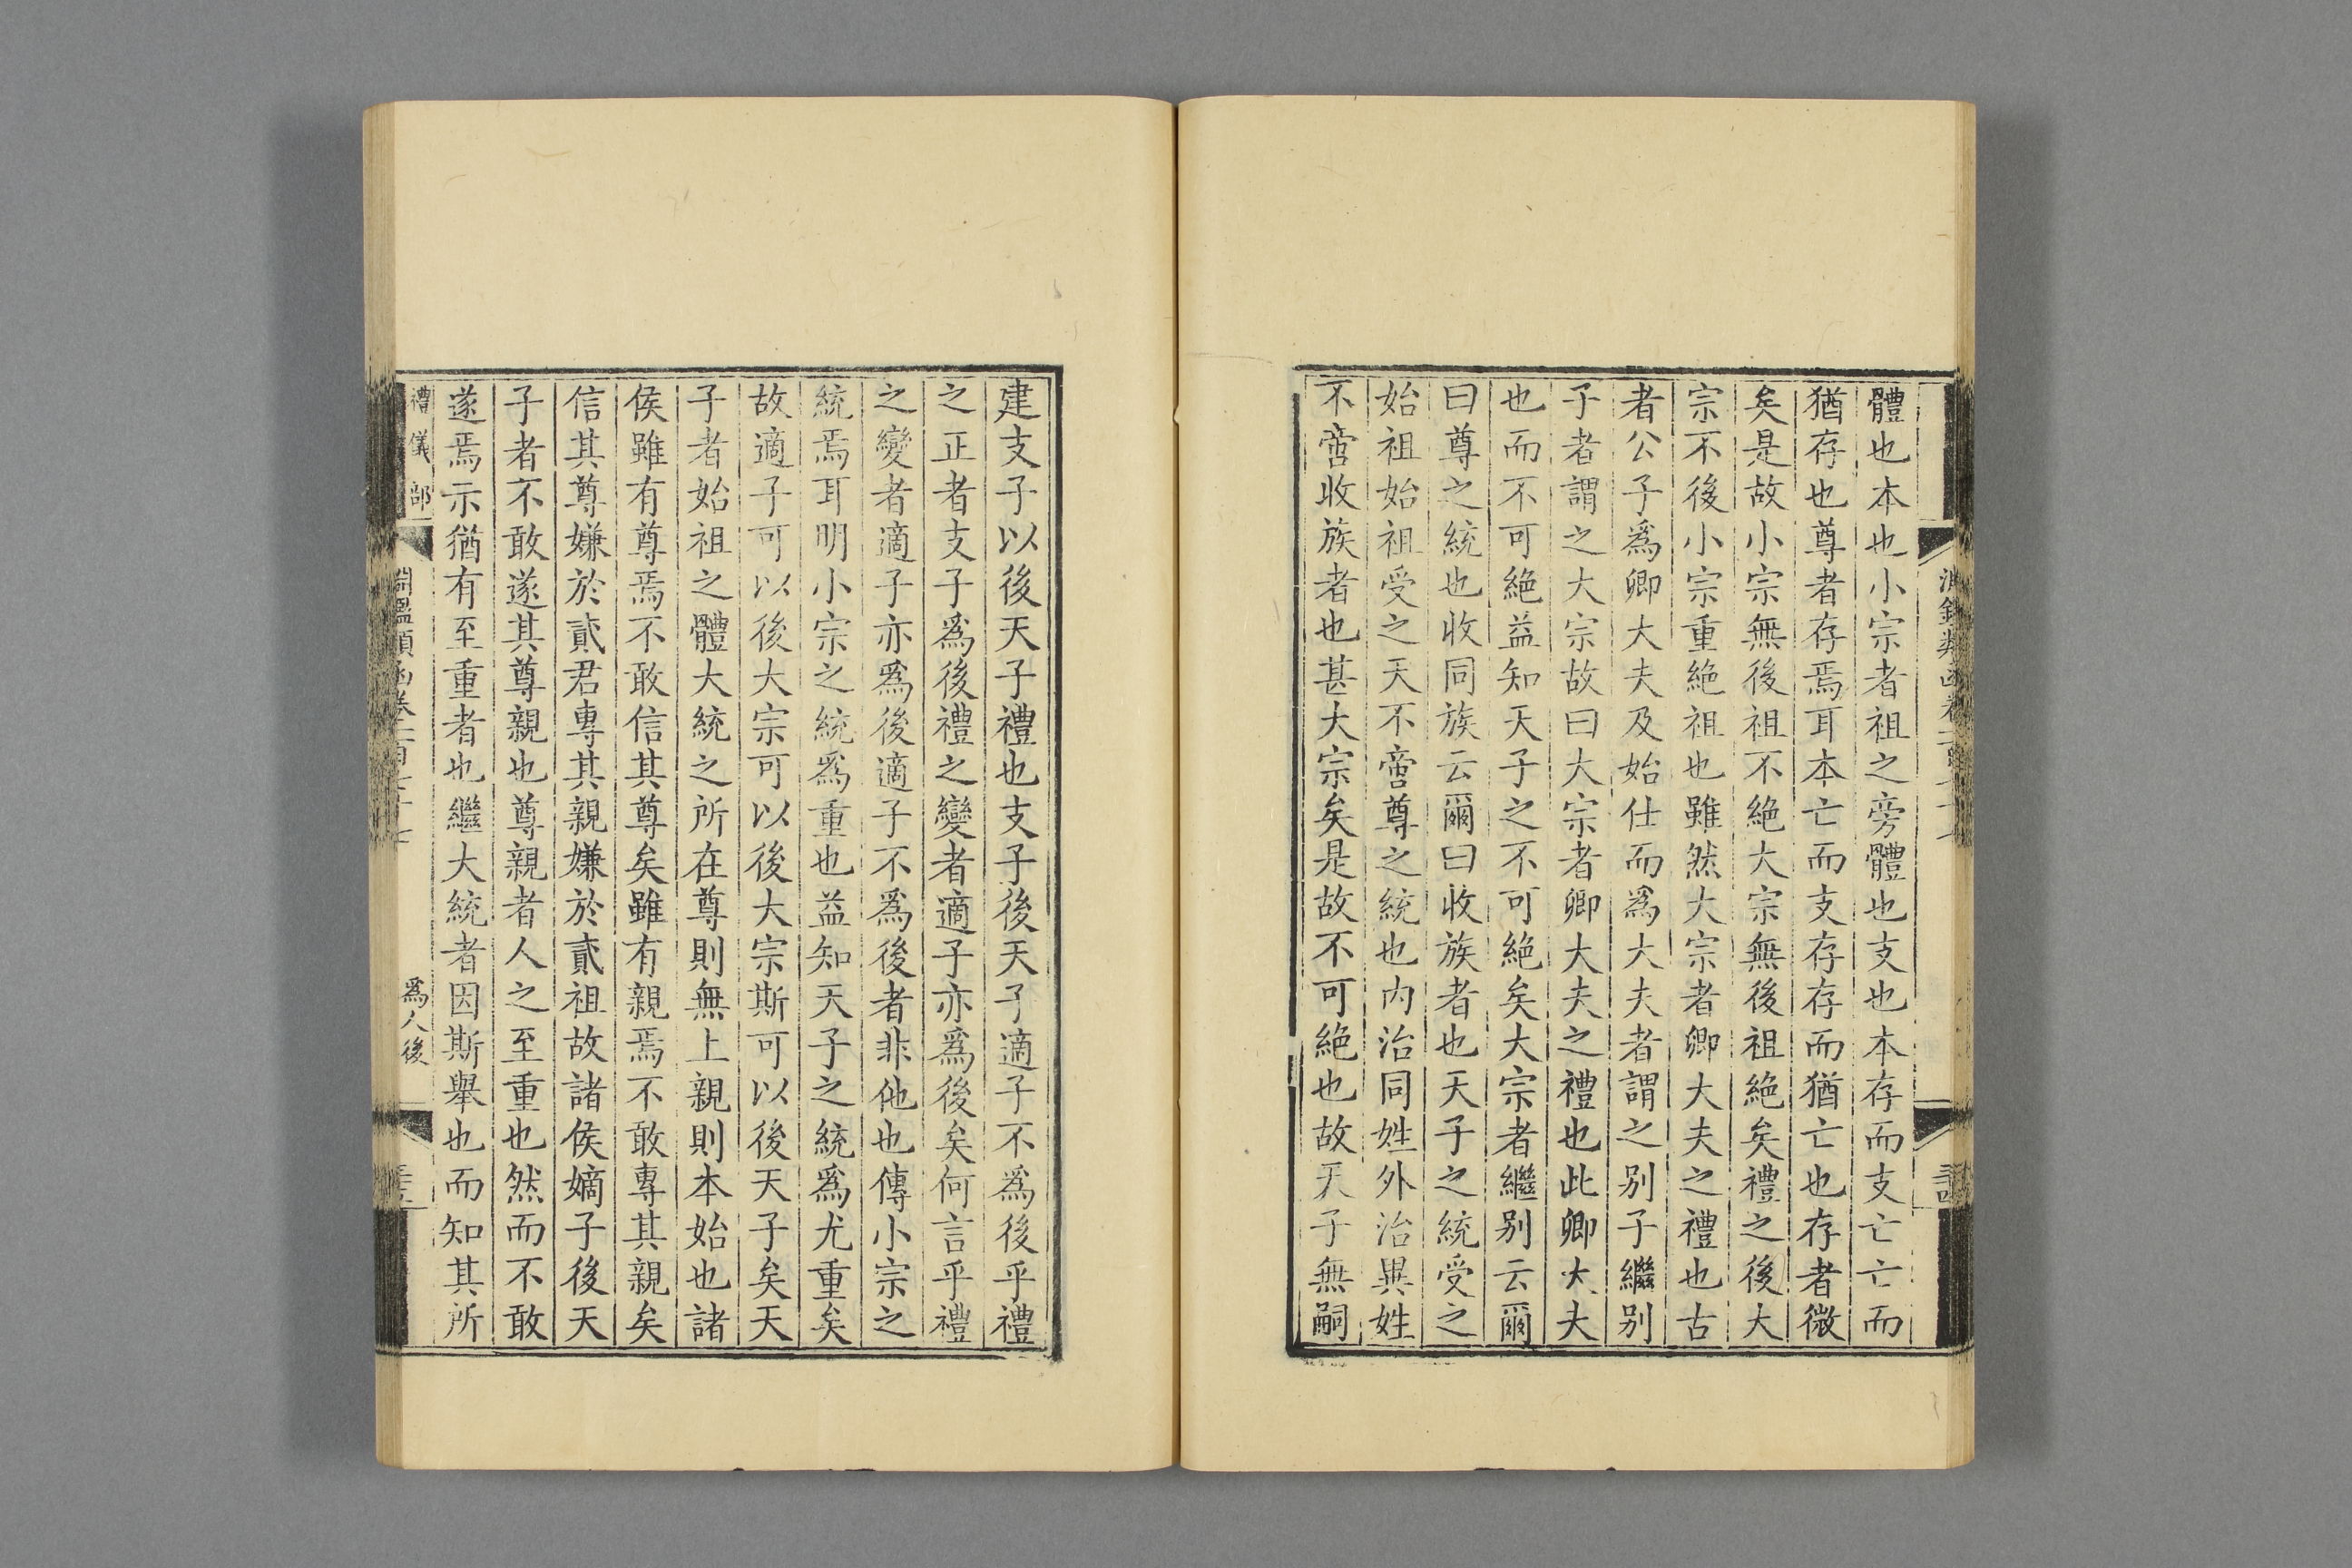 體也本也小宗者祖之旁體也支也本存而支亡亡而
猶存也尊者存焉耳本亡而支存存而猶亡也存者微
矣是故小宗無後祖不絶大宗無後祖絶矣禮之後大
宗不後小宗重絶祖也雖然大宗者卿大夫之禮也古
者公子爲卿大夫及始仕而爲大夫者謂之别子繼别
子者謂之大宗故曰大宗者卿大夫之禮也此卿大夫
也而不可絶益知天子之不可絶矣大宗者繼别云爾
曰尊之統也收同族云爾曰收族者也天子之統受之
始祖始祖受之天不啻尊之統也内治同姓外治異姓
不啻收族者也甚大宗矣是故不可絶也故天子無嗣
建支子以後天子禮也支子後天子適子不爲後乎禮
之正者支子爲後禮之變者適子亦爲後矣何言乎禮
之變者適子亦爲後適子不爲後者非他也傳小宗之
統焉耳明小宗之統爲重也益知天子之統爲尤重矣
故適子可以後大宗可以後大宗斯可以後天子矣天
子者始祖之體大統之所在尊則無上親則本始也諸
侯雖有尊焉不敢信其尊矣雖有親焉不敢專其親矣
信其尊嫌於貳君專其親嫌於貳祖故諸侯嫡子後天
子者不敢遂其尊親也尊親者人之至重也然而不敢
遂焉示猶有至重者也繼大統者因斯舉也而知其所
禮儀部
爲人後